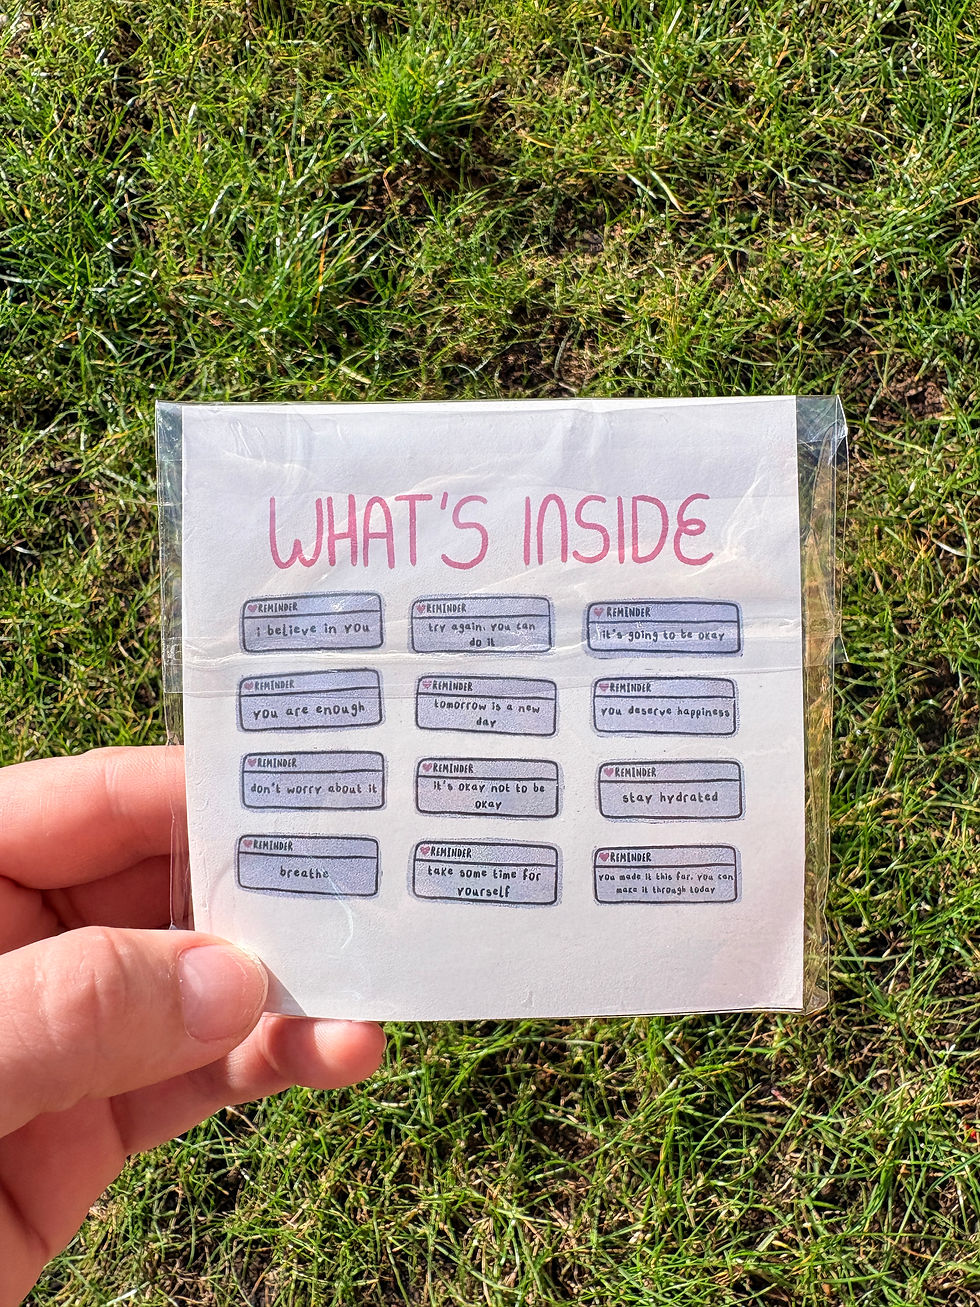 WHAT'S INSIDE
REMINDER
i believe in you
REMINDER
try again. you can
do it
REMINDER
it's going to be okay
REMINDER
you are enough
REMINDER
tomorrow is a new
day
REMINDER
you deserve happiness
REMINDER
don't worry about it
REMINDER
it's okay not to be
okay
REMINDER
stay hydrated
REMINDER
breathe
REMINDER
take some time for
yourself
REMINDER
you made it this far. you can
make it through today